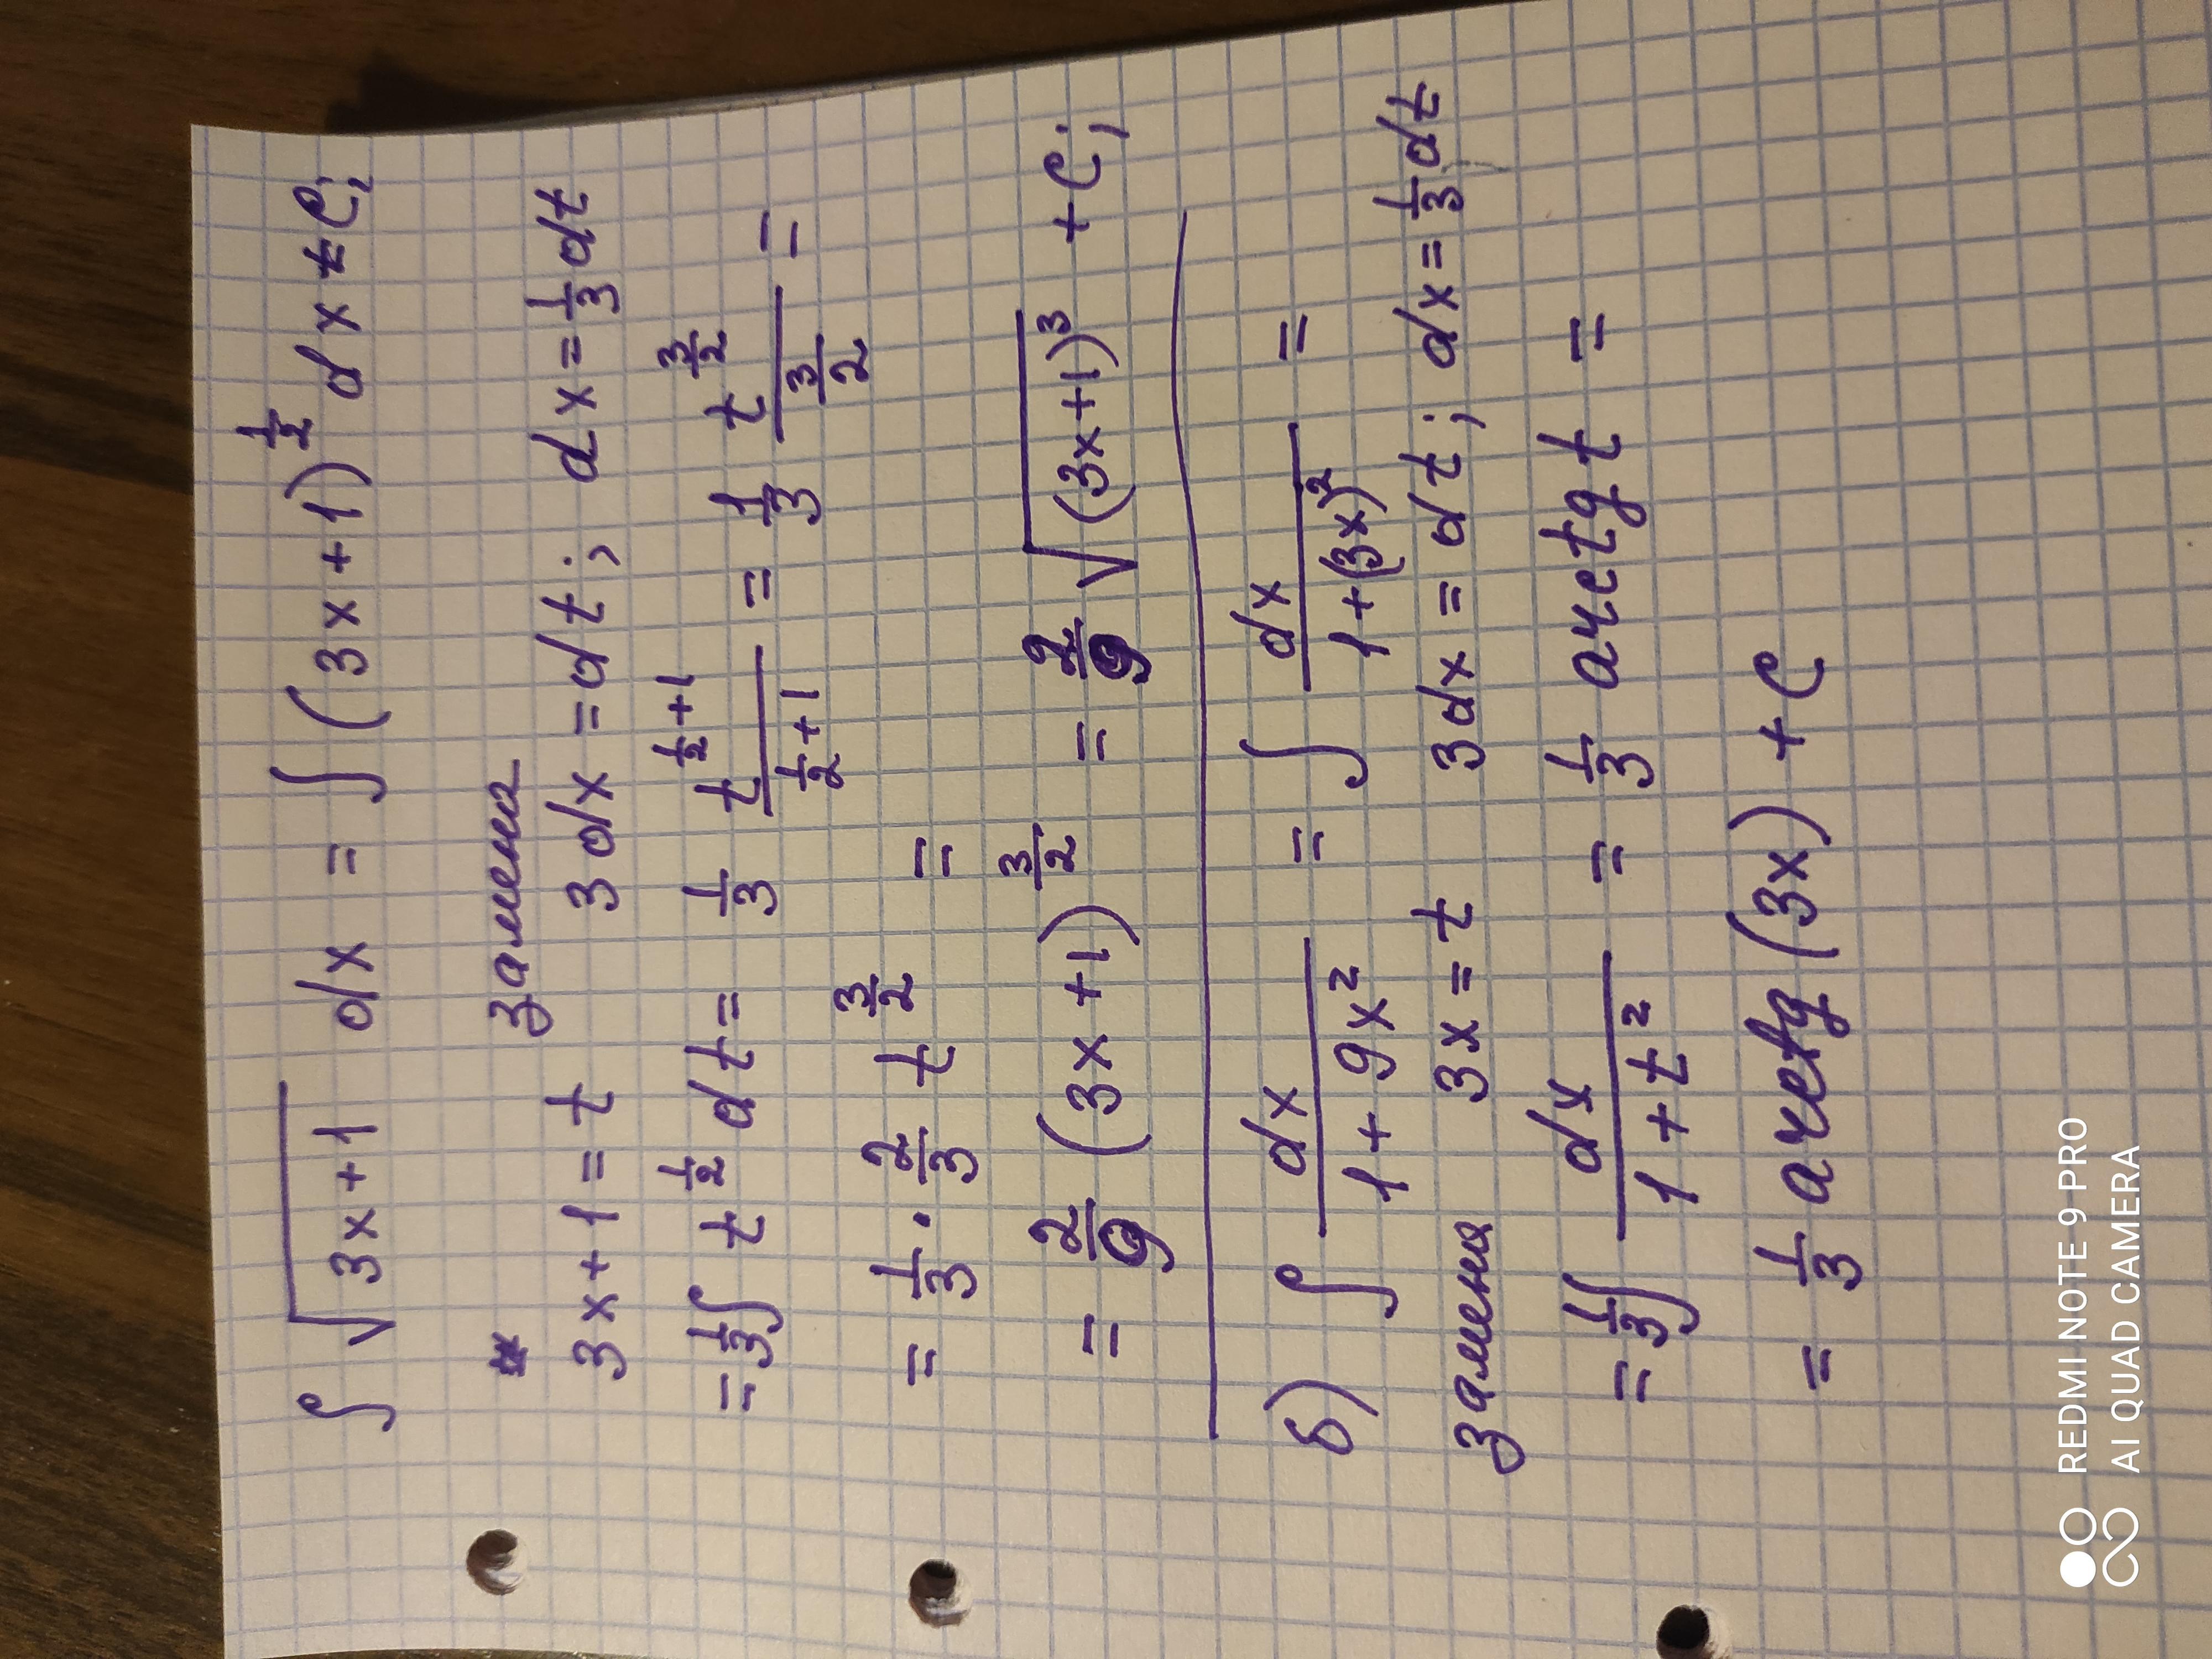 ∫ √(3x+1) dx = ∫ (3x+1)^(1/2) dx
замена
3x+1 = t 3dx = dt; dx = 1/3 dt
= 1/3 ∫ t^(1/2) dt = 1/3 t^(1/2+1)/(1/2+1) = 1/3 t^(3/2)/(3/2) =
= 1/3 · 2/3 t^(3/2) =
= 2/9 (3x+1)^(3/2) = 2/9 √((3x+1)^3) + C;
б) ∫ dx/(1+9x²) = ∫ dx/(1+(3x)²) =
замена 3x = t 3dx = dt; dx = 1/3 dt
= 1/3 ∫ dx/(1+t²) = 1/3 arctg t =
= 1/3 arctg (3x) + C
REDMI NOTE 9 PRO
AI QUAD CAMERA